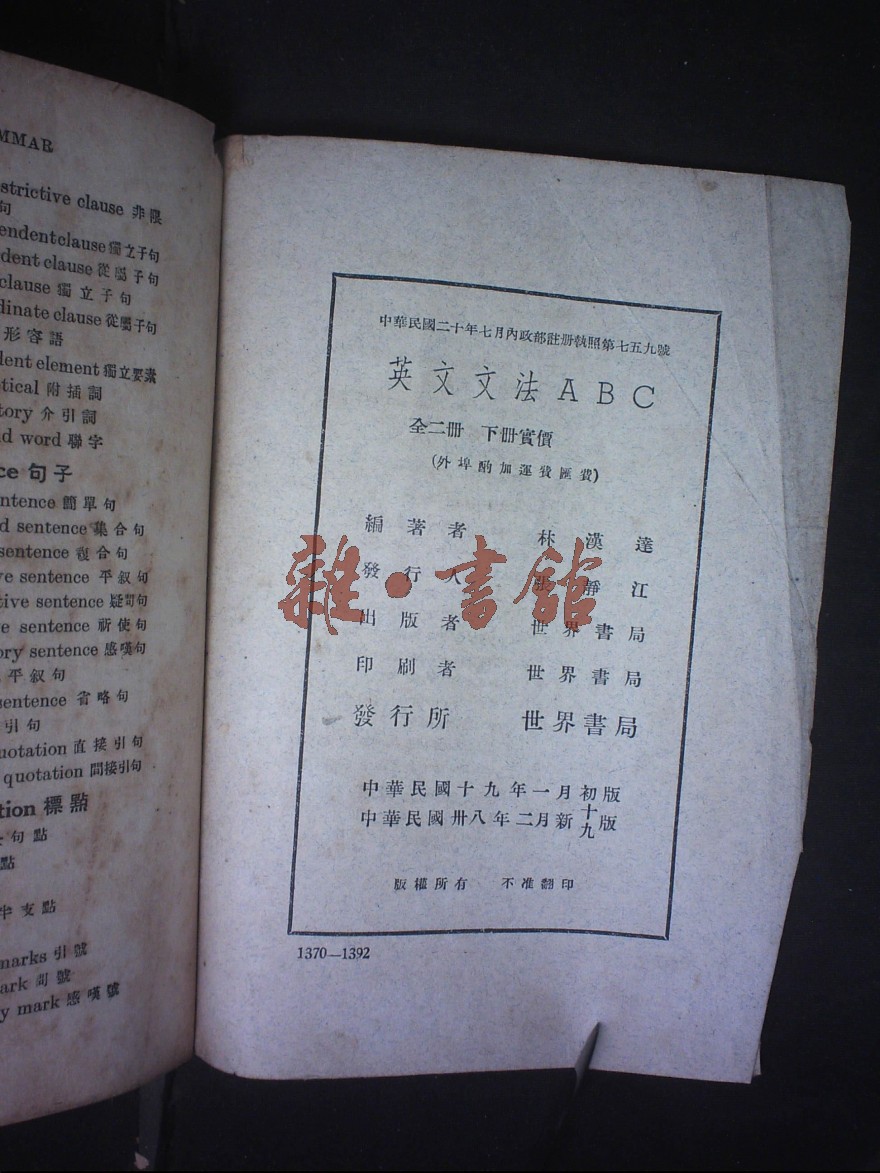 MMAR
strictive clause 非限
句
endentclause獨立子句
dent clause 從屬子句
clause 獨立子句
dinate clause 從屬子句
形容語
dent element 獨立要素
tical 附插詞
tory 介引詞
d word 聯字
ce 句子
ntence 簡單句
d sentence 集合句
sentence 複合句
ve sentence 平叙句
tive sentence 疑問句
e sentence 祈使句
ory sentence 感嘆句
平叙句
sentence 省略句
引句
uotation 直接引句
quotation 間接引句
tion 標點
句點
點
半支點
marks 引號
ark 問號
y mark 感嘆號
中華民國二十年七月內政部註册執照第七五九號
英文文法ABC
全二册 下册實價
(外埠酌加運費匯費)
編著者 林漢達
發行人 張靜江
出版者 世界書局
印刷者 世界書局
發行所 世界書局
中華民國十九年一月初版
中華民國卅八年二月新十九版
版權所有 不准翻印
1370—1392
雜·書館